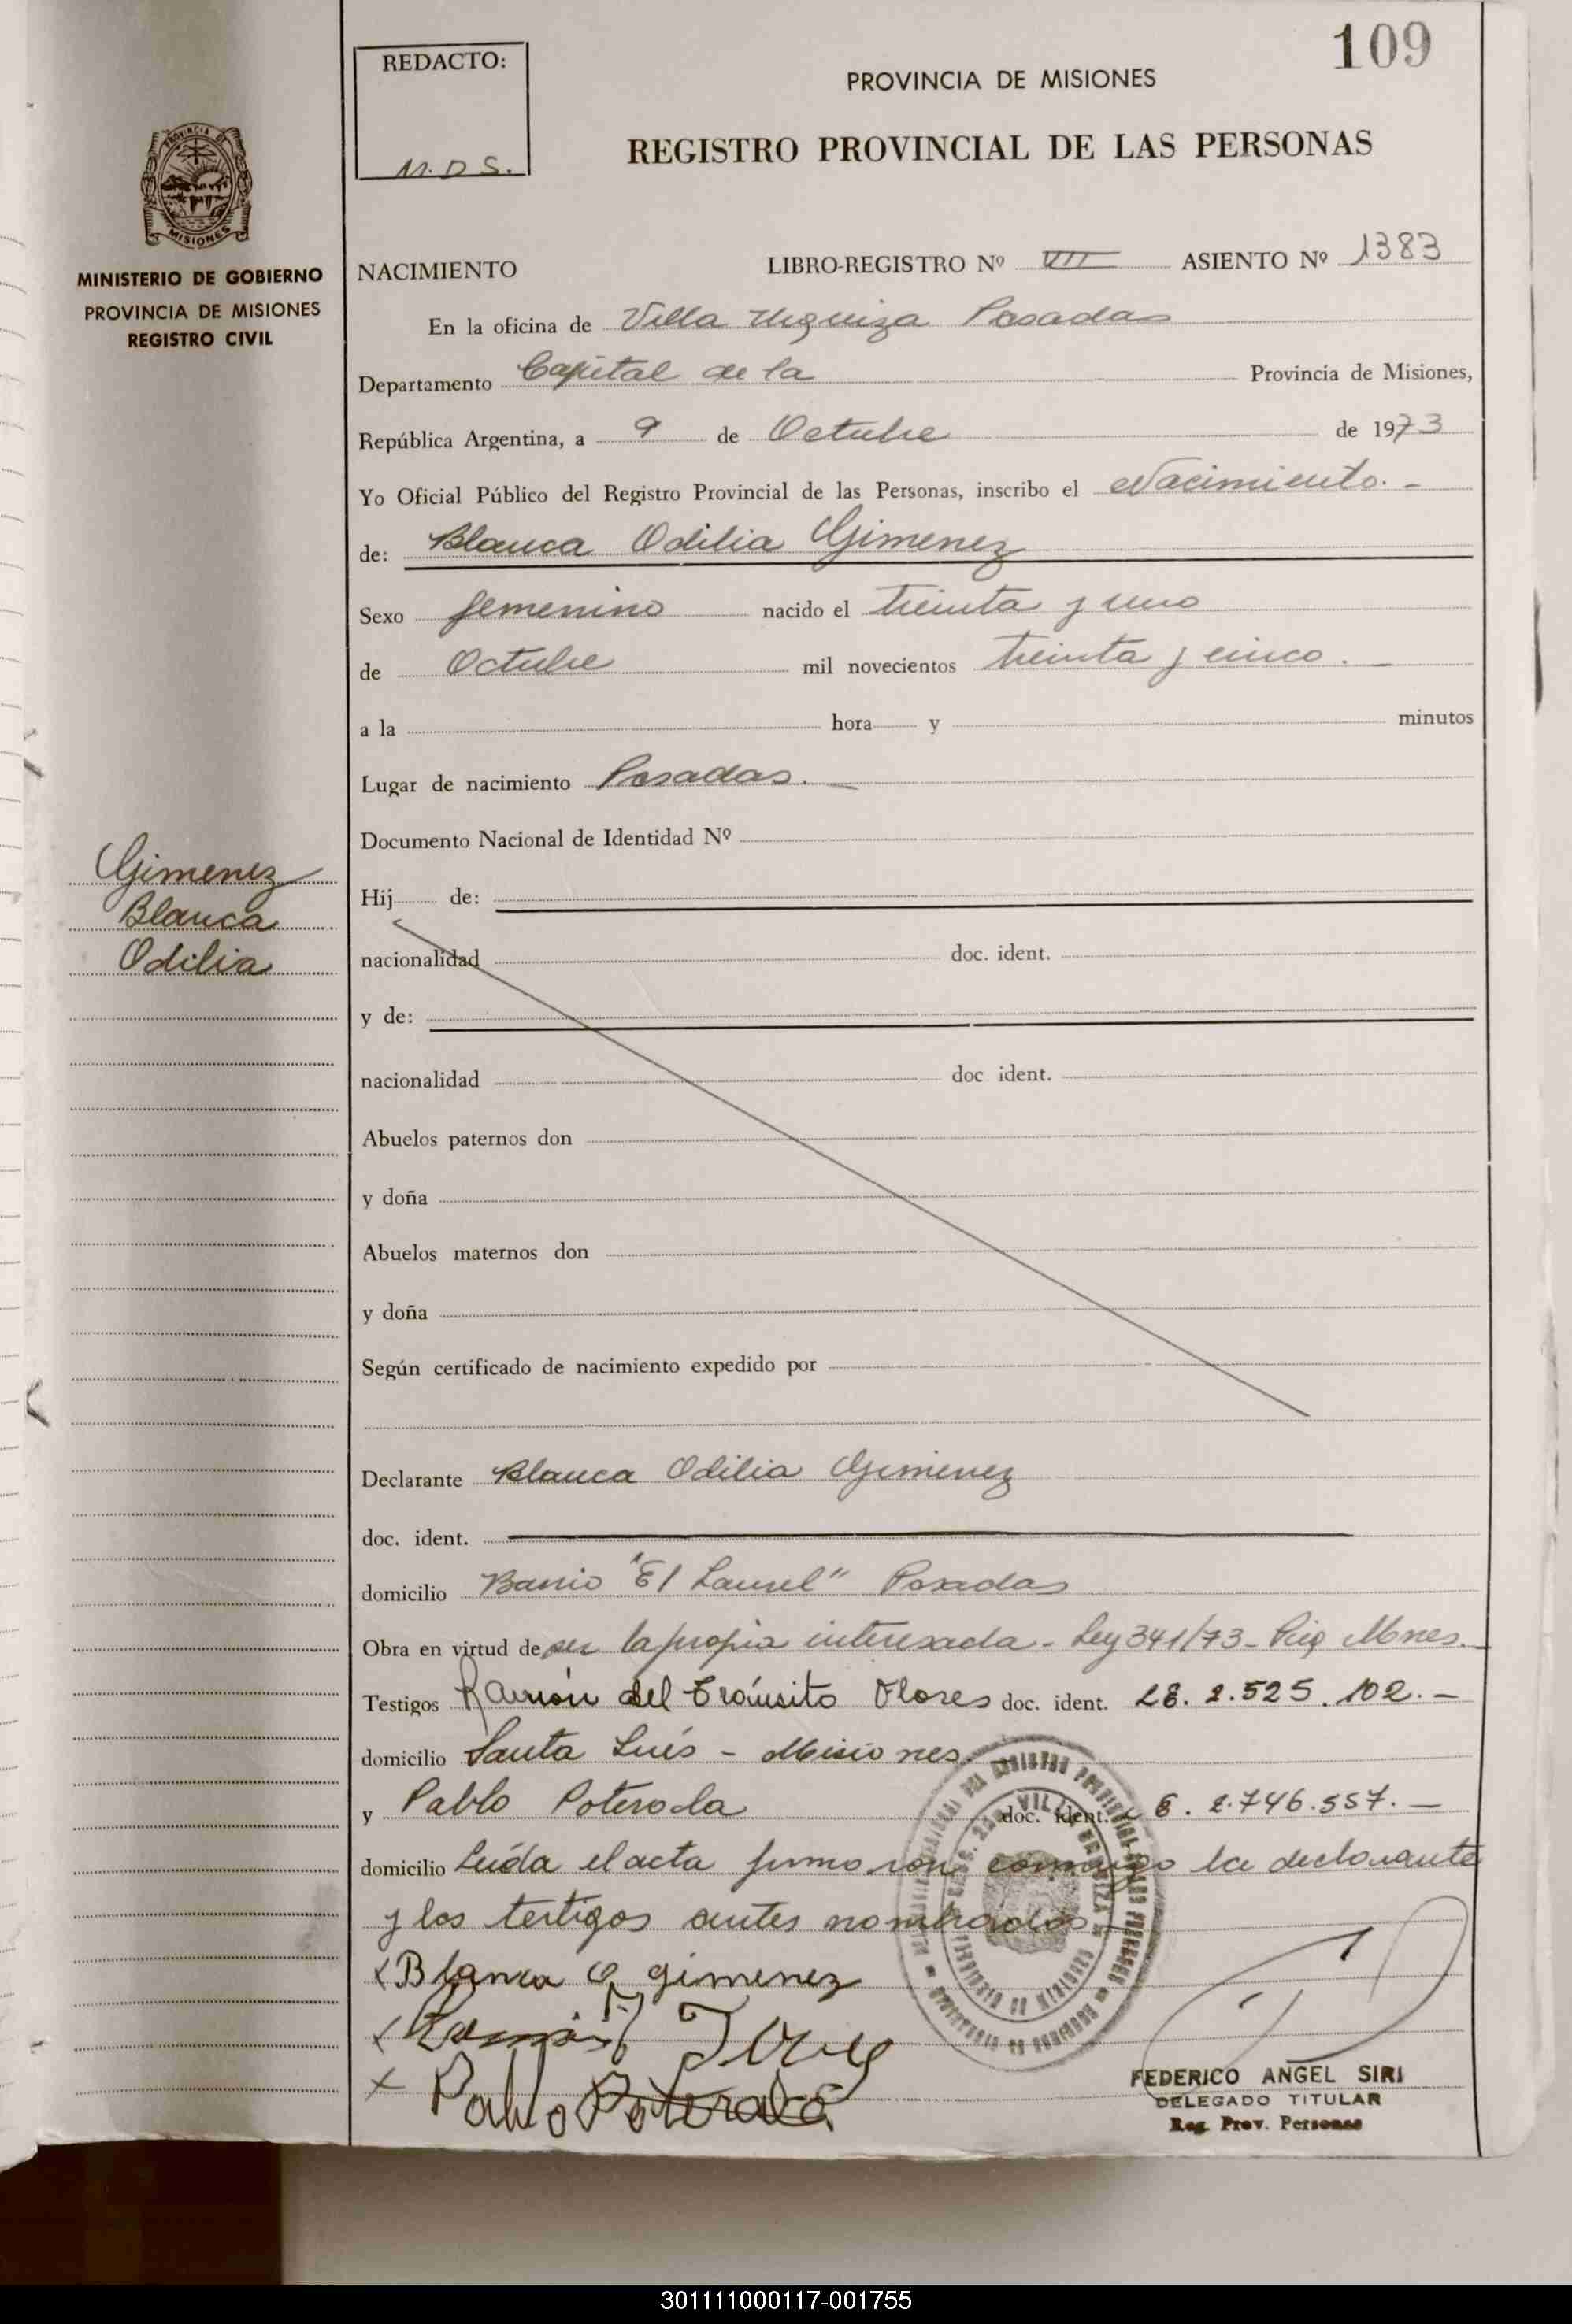 109
REDACTO:
M.D.S.
PROVINCIA DE MISIONES
REGISTRO PROVINCIAL DE LAS PERSONAS
MISIONES
MINISTERIO DE GOBIERNO
PROVINCIA DE MISIONES
REGISTRO CIVIL
NACIMIENTO LIBRO-REGISTRO Nº VII ASIENTO Nº 1383
En la oficina de Villa Urquiza Posadas
Departamento Capital de la Provincia de Misiones,
República Argentina, a 9 de Octubre de 1973
Yo Oficial Público del Registro Provincial de las Personas, inscribo el Nacimiento.-
de: Blanca Odilia Gimenez
Sexo femenino nacido el treinta y uno
de Octubre mil novecientos treinta y cinco.
a la hora y minutos
Lugar de nacimiento Posadas.
Documento Nacional de Identidad Nº
Gimenez
Blanca
Odilia
Hij de:
nacionalidad doc. ident.
y de:
nacionalidad doc ident.
Abuelos paternos don
y doña
Abuelos maternos don
y doña
Según certificado de nacimiento expedido por
Declarante Blanca Odilia Gimenez
doc. ident.
domicilio Barrio "El Laurel" Posadas
Obra en virtud de ser la propia interesada - Ley 341/73 - Mnes.
Testigos Ramón del Tránsito Flores doc. ident. 2.525.102.-
domicilio Santa Inés - Misiones.
y Pablo Poterala doc. ident. 2.746.557.-
domicilio Leída el acta firmaron conmigo la declarante
y los testigos antes nombrados
x Blanca O gimenez
x Ramón T
x Pablo Poterala
FEDERICO ANGEL SIRI
DELEGADO TITULAR
Reg. Prov. Personas
301111000117-001755